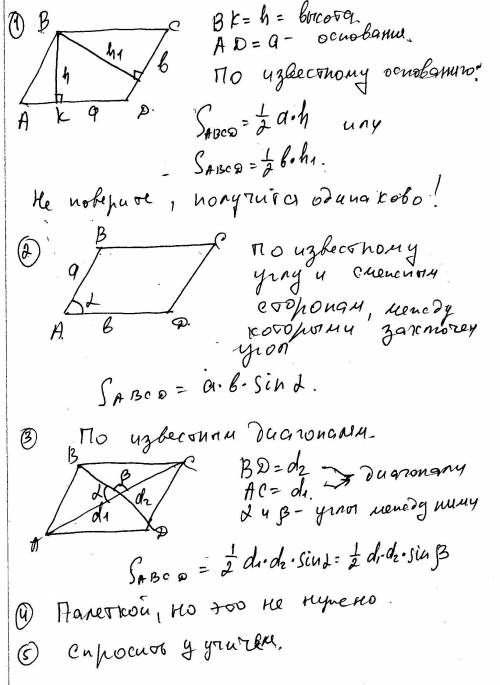 ① B C BK = h = высота.
h h1 b AD = a - основание.
A K a D. По известному основанию:
S ABCD = 1/2 a·h или
S ABCD = 1/2 b·h1.
Не поверите, получится одинаково!
② B C По известному
a углу и смежным
α сторонам, между
A. b D. которыми заключен
угол
S ABCD = a·b·sin α.
③ По известным диагоналям.
B C BD = d2
α β d2 AC = d1. диагонали
d1 α и β - углы между ними
A D
S ABCD = 1/2 d1·d2·sin α = 1/2 d1·d2·sin β
④ Палеткой, но это не нужно.
⑤ Спросить у училки.